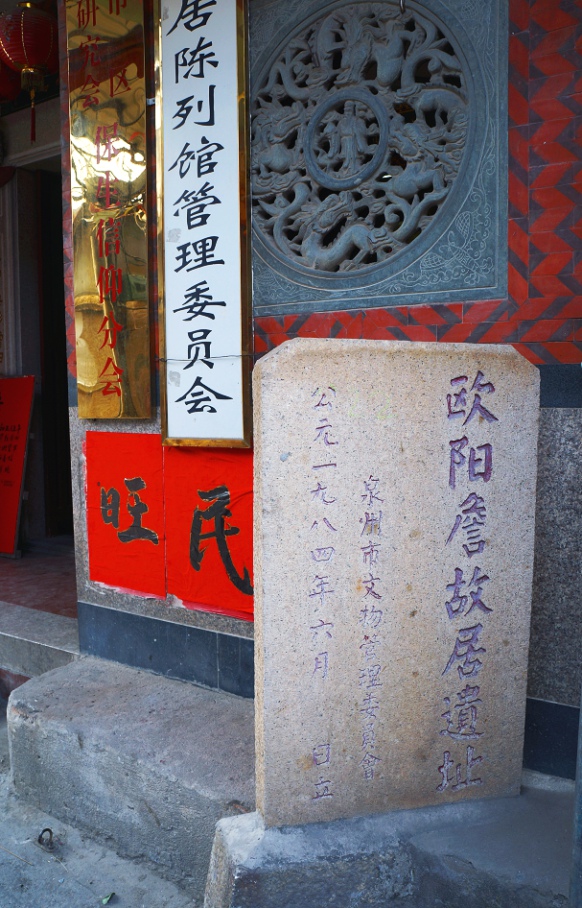 欧阳詹故居遗址
泉州市文物管理委員會
公元一九八四年六月 日立
居陈列馆管理委员会
市 区
研究会 保生信仰分会
民
旺